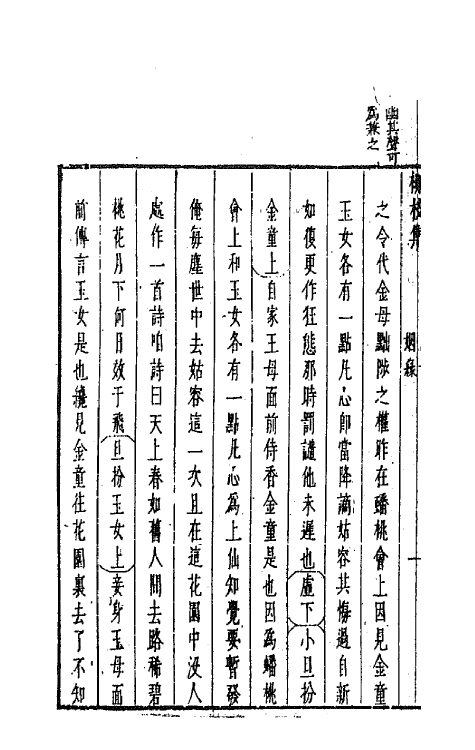 幽其聲可
為兼之
柳枝集
姻緣
一
之令代金母黜陟之權昨在蟠桃會上因見金童
玉女各有一點凡心卽當降謫姑容其悔過自新
如復更作狂態那時罰譴他未遲也虛下小旦扮
金童上自家王母面前侍香金童是也因為蟠桃
會上和玉女各有一點凡心為上仙知覺要暫發
俺每塵世中去姑容這一次且在這花園中沒人
處作一首詩咱詩曰天上春如舊人間去路稀碧
桃花月下何日效于飛旦扮玉女上妾身玉母面
前傳言玉女是也纔見金童往花園裏去了不知